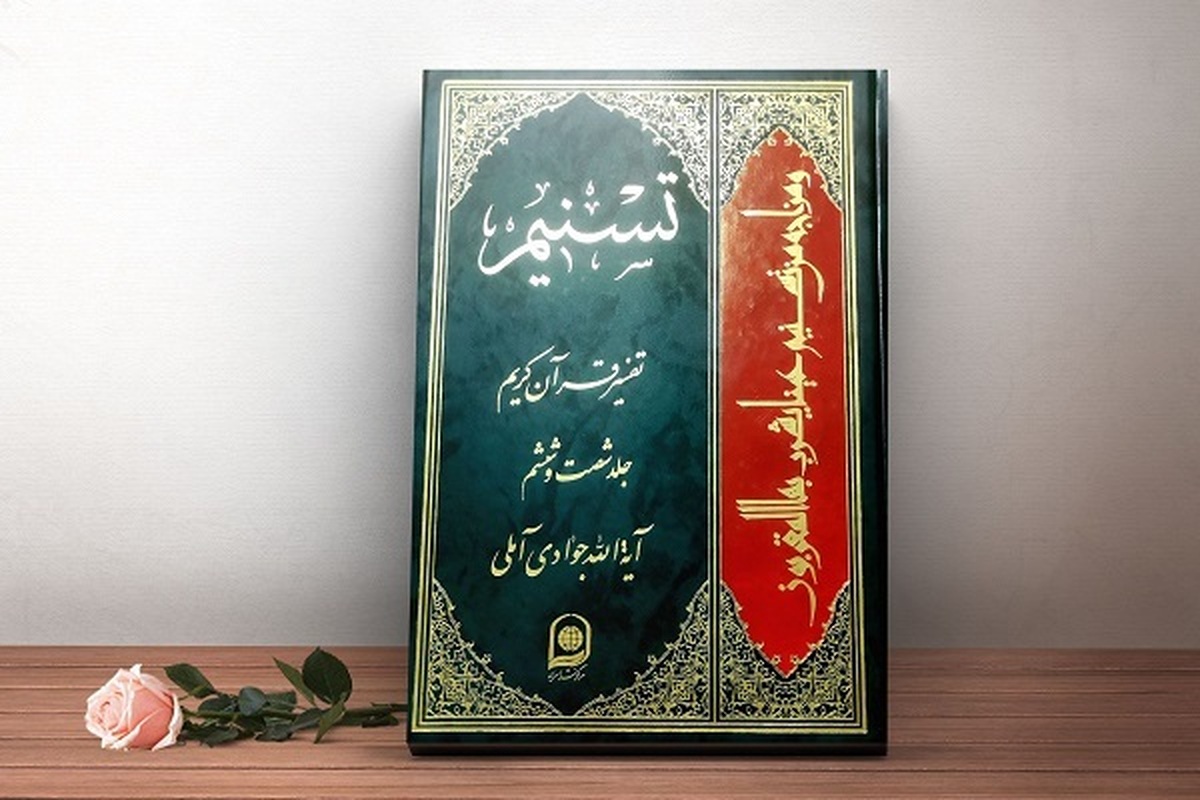 تسنیم
تفسیر قرآن کریم
جلد شصت و ششم
آیة الله جوادی آملی
ومزاجه من تسنیم عینا یشرب بها المقربون